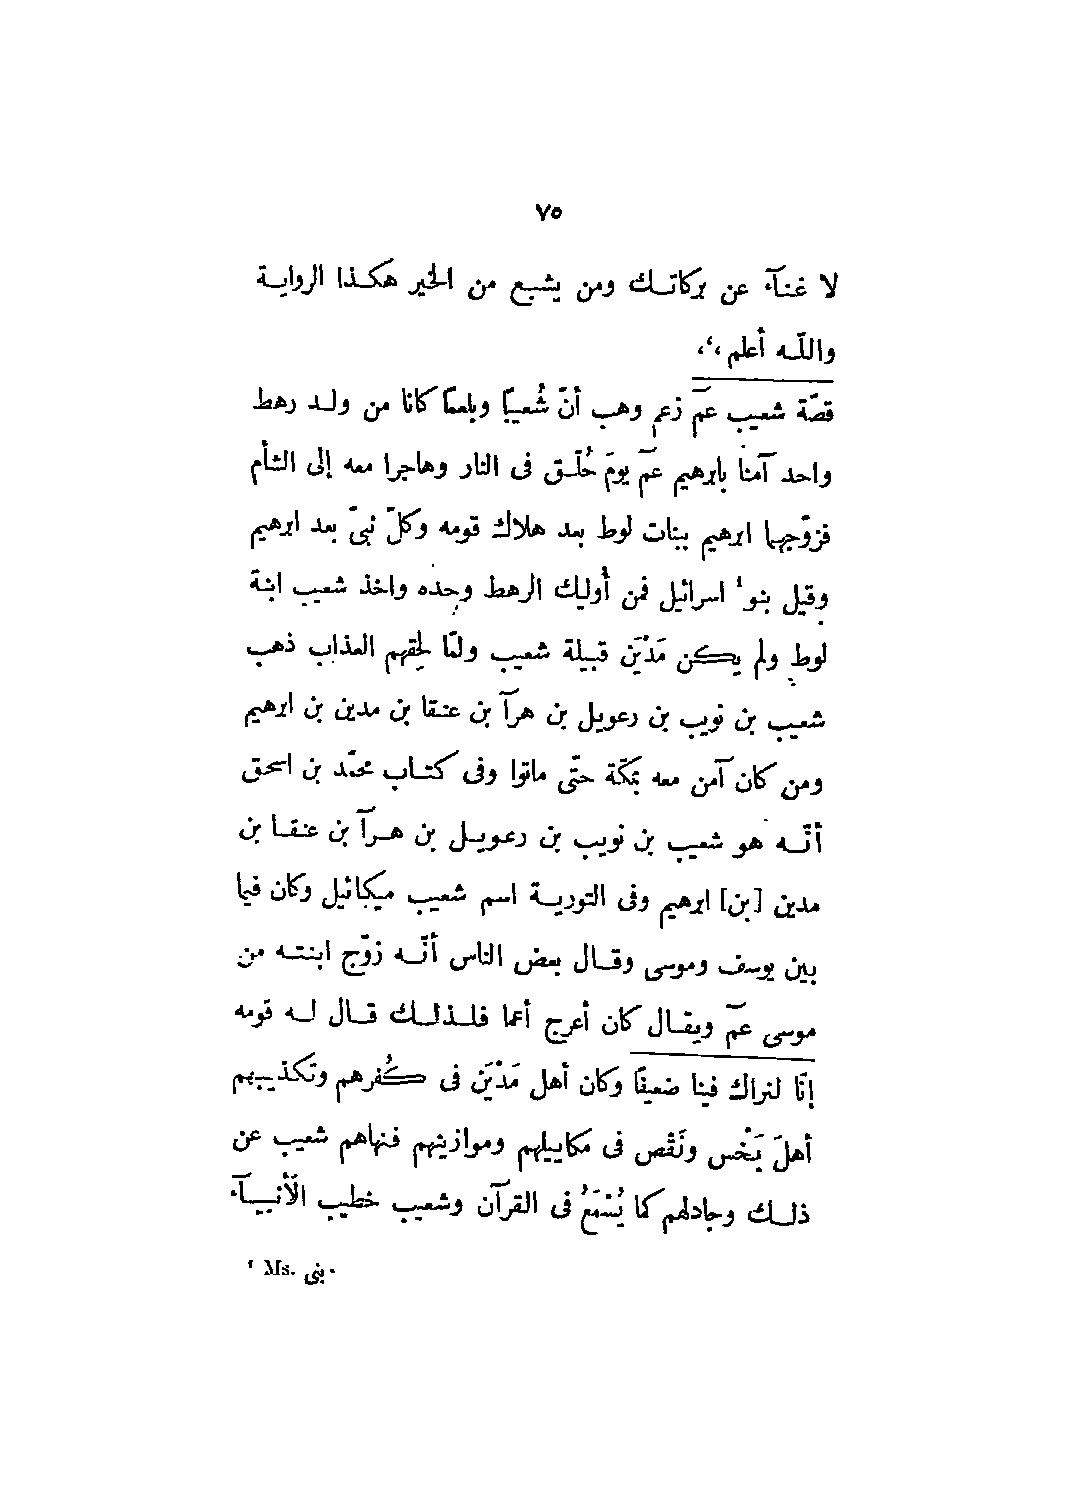 ٧٥
لا غنآء عن بركاتـك ومن يشبع من الخير هكـذا الروايـة
واللّـه أعلم ،‘،
قصّة شعيب عمّ زعم وهب أنّ شُعيبًا وبلعمًا كانا من ولـد رهط
واحد آمنا بابرهيم عمّ يومَ حُلّـق فى النار وهاجرا معه إلى الشأم
فزوّجهما ابرهيم ببنات لوط بعد هلاك قومه وكلّ نبىّ بعد ابرهيم
وقيل بنو¹ اسرائيل فمن أوليك الرهط وحده واخذ شعيب ابنة
لوط ولم يكن مَدْيَن قبيلة شعيب ولمّا لحِقهم العذاب ذهب
شعيب بن نويب بن رعويل بن هرآ بن عنقا بن مدين بن ابرهيم
ومن كان آمن معه بمكّة حتّى ماتوا وفى كتـاب محمّد بن اسحق
أنّـه هو شعيب بن نويب بن رعويـل بن هـرآ بن عنقـا بن
مدين [بن] ابرهيم وفى التوريـة اسم شعيب ميكائيل وكان فيما
بين يوسف وموسى وقـال بعض الناس أنّـه زوّج ابنتـه من
موسى عمّ ويقـال كان أعرج أعما فلـذلـك قـال لـه قومه
إنّا لنراك فينا ضعيفًا وكان أهل مَدْيَن فى كُفرهم وتكذيبهم
أهلَ بَخْس ونَقْص فى مكاييلهم وموازينهم فنهاهم شعيب عن
ذلـك وجادلهم كما يُسْمَعُ فى القرآن وشعيب خطيب الأنبيـآء
¹ Ms. بنى.